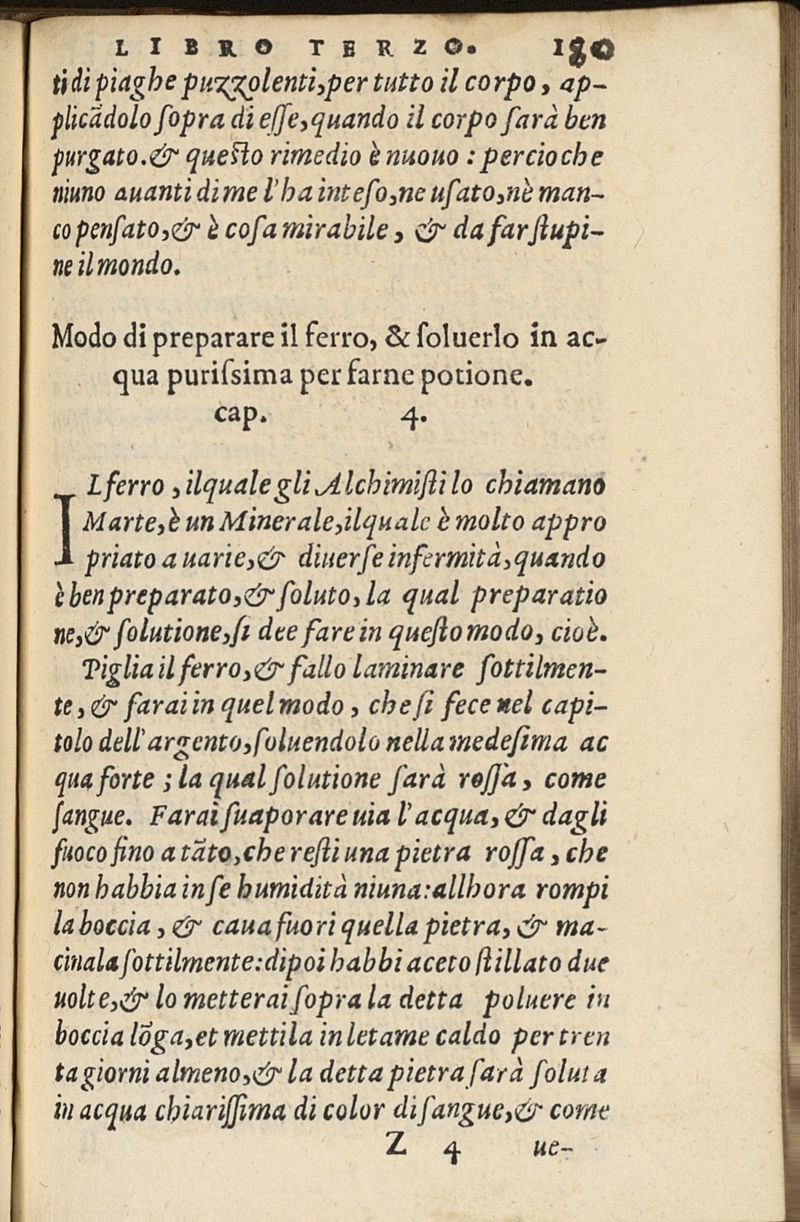 LIBRO TERZO. 180
ti di piaghe puzzolenti, per tutto il corpo, ap-
plicãdolo ſopra di eſſe, quando il corpo ſarà ben
purgato. & queſto rimedio è nuouo : percioche
niuno auanti di me l'ha inteſo, ne uſato, nè man-
co penſato, & è coſa mirabile, & da far ſtupi-
ne il mondo.
Modo di preparare il ferro, & ſoluerlo in ac-
qua puriſsima per farne potione.
cap. 4.
IL ferro, ilquale gli Alchimiſti lo chiamano
Marte, è un Minerale, ilquale è molto appro
priato a uarie, & diuerſe infermità, quando
è ben preparato, & ſoluto, la qual preparatio
ne, & ſolutione, ſi dee fare in queſto modo, cioè.
Piglia il ferro, & fallo laminare ſottilmen-
te, & farai in quel modo, che ſi fece nel capi-
tolo dell'argento, ſoluendolo nella medeſima ac
qua forte ; la qual ſolutione ſarà roſſa, come
ſangue. Farai ſuaporare uia l'acqua, & dagli
fuoco fino a tãto, che reſti una pietra roſſa, che
non habbia in ſe humidità niuna: allhora rompi
la boccia, & caua fuori quella pietra, & ma-
cinala ſottilmente: dipoi habbi aceto ſtillato due
uolte, & lo metterai ſopra la detta poluere in
boccia lõga, et mettila in letame caldo per tren
ta giorni almeno, & la detta pietra ſarà ſoluta
in acqua chiariſſima di color di ſangue, & come
Z 4 ue-